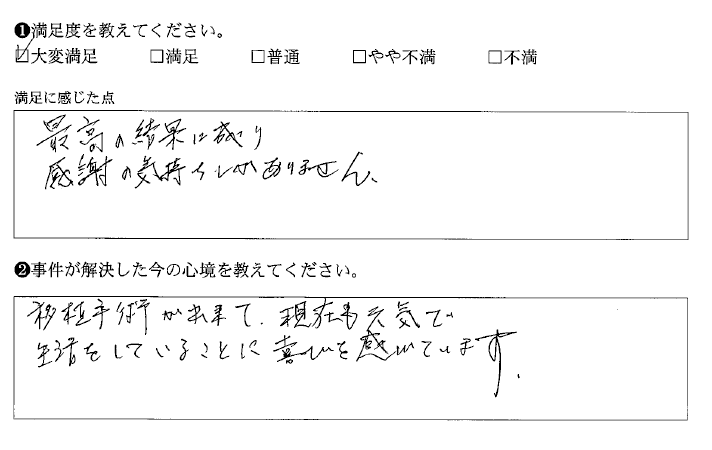 ❶満足度を教えてください。
☑大変満足 □満足 □普通 □やや不満 □不満
満足に感じた点
最高の結果に成り
感謝の気持ちしかありません、
❷事件が解決した今の心境を教えてください。
移植手術が出来て、現在も元気で
生活をしていることに喜びを感じています.